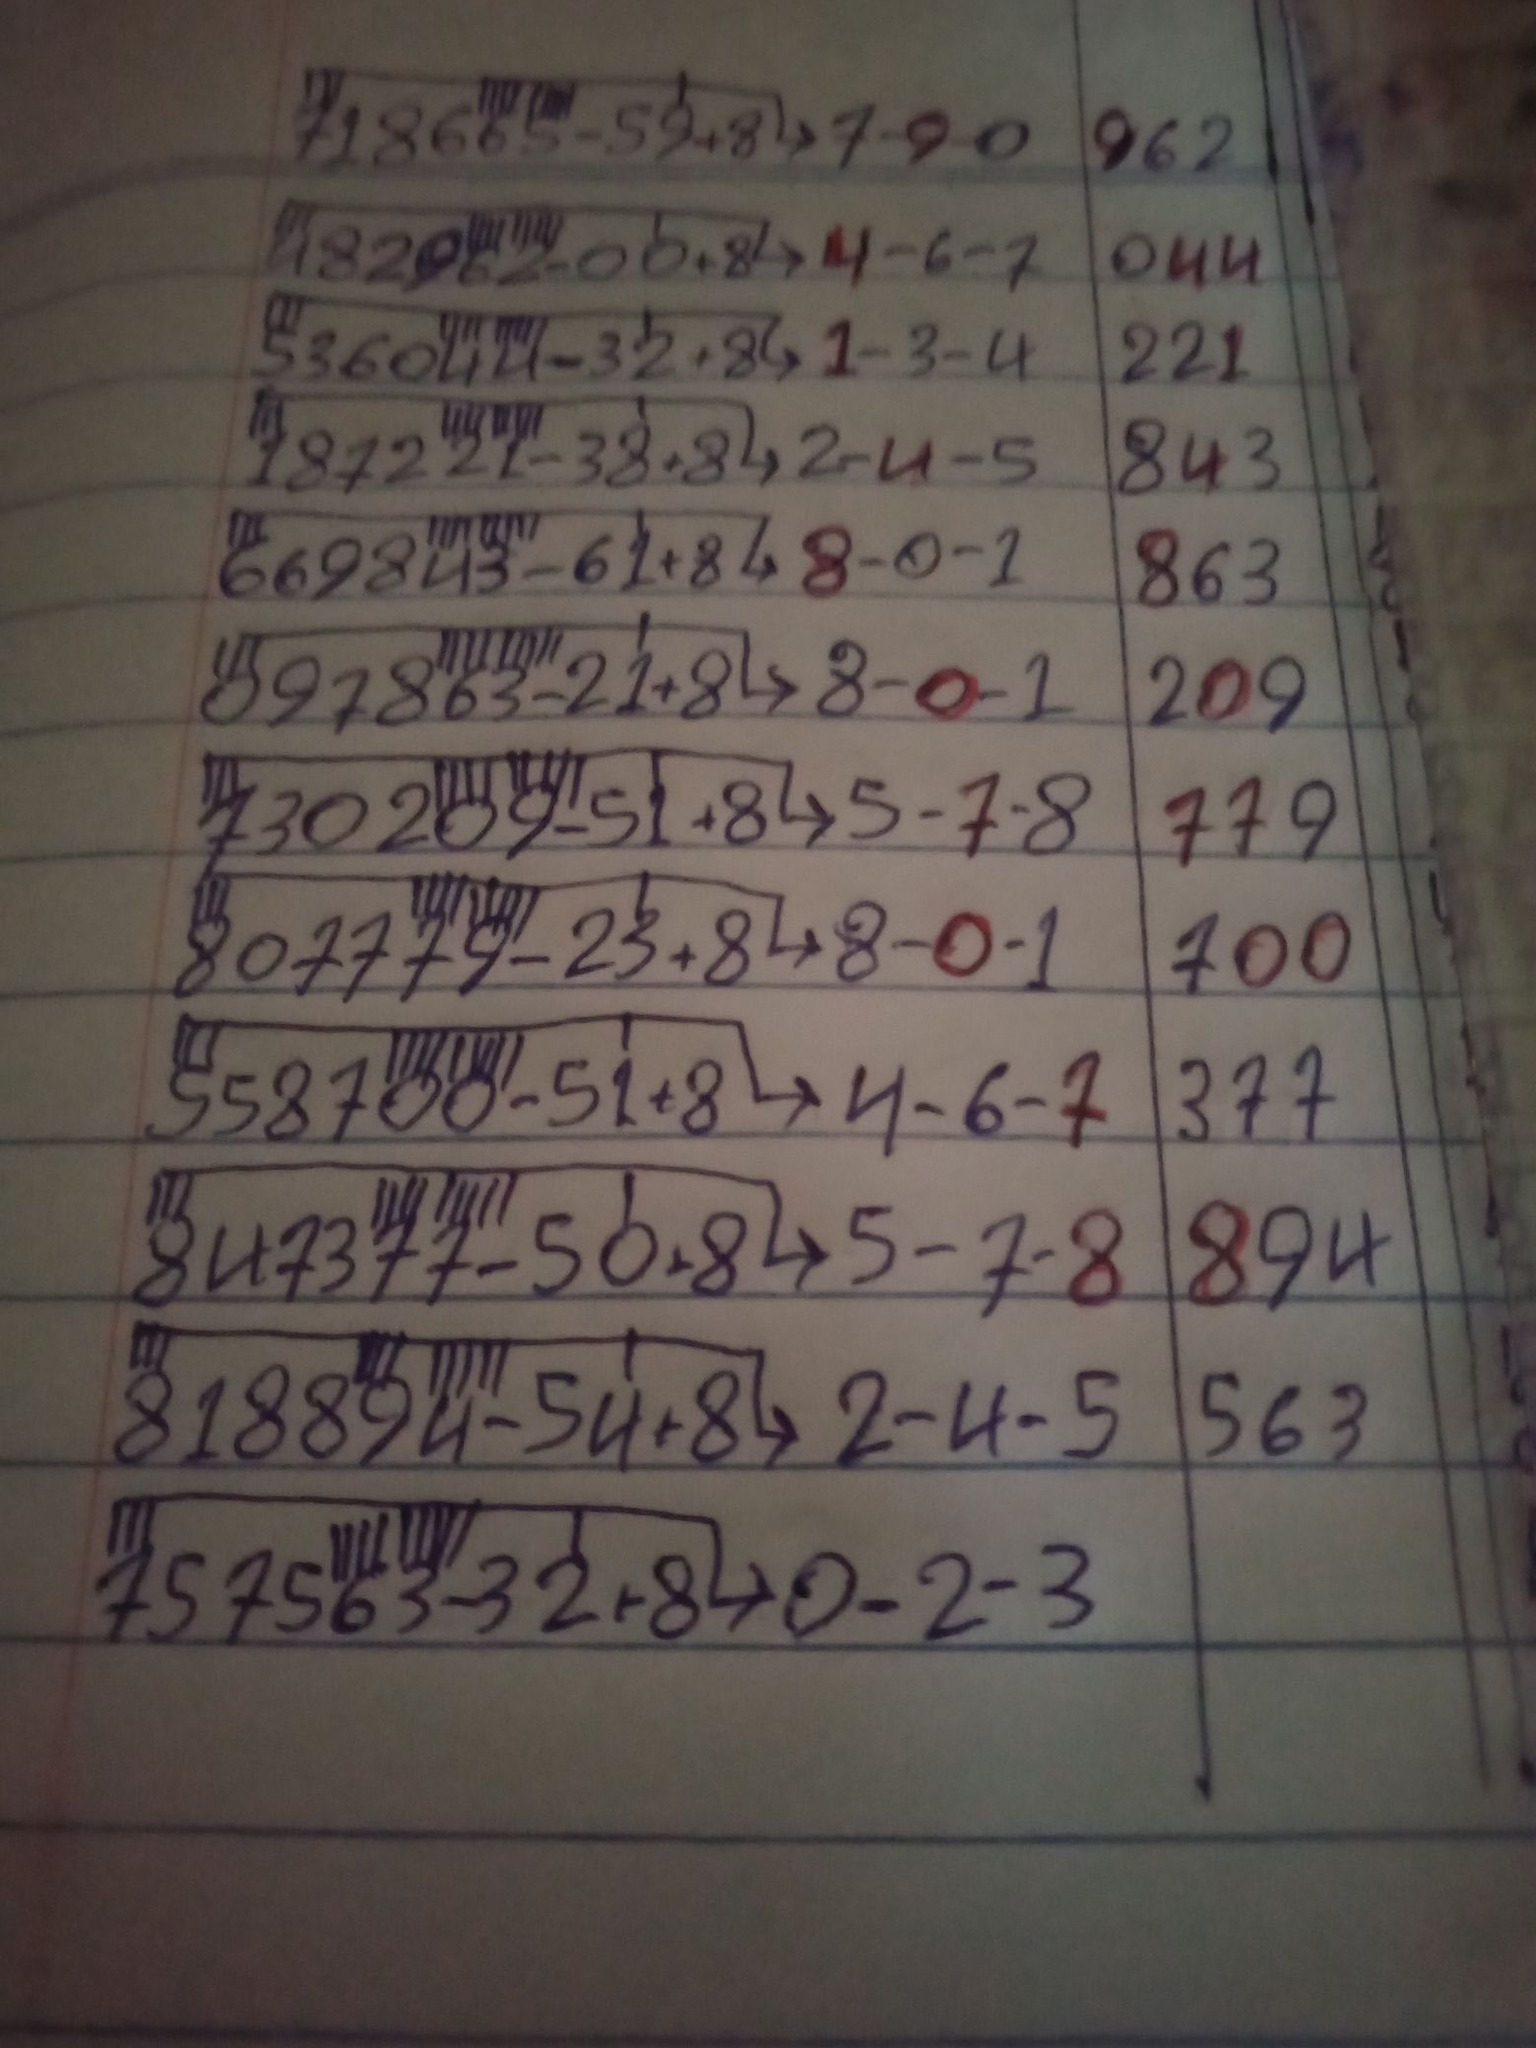 718665-59+8↳7-9-0 962
482962-00+8↳4-6-7 044
536044-32+8↳1-3-4 221
187221-38+8↳2-4-5 843
669843-61+8↳8-0-1 863
097863-21+8↳8-0-1 209
730209-51+8↳5-7-8 779
807779-23+8↳8-0-1 700
558700-51+8↳4-6-7 377
847377-50+8↳5-7-8 894
818894-54+8↳2-4-5 563
757563-32+8↳0-2-3